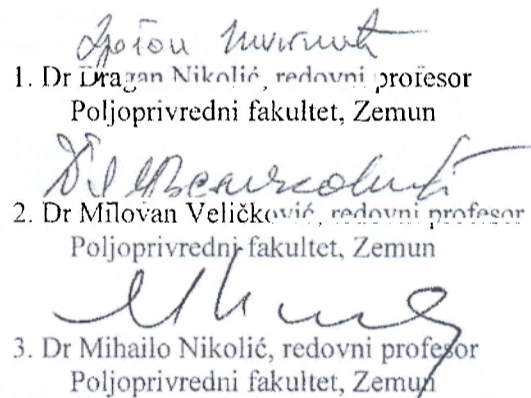 1. Dr Dragan Nikolić, redovni profesor
Poljoprivredni fakultet, Zemun
2. Dr Milovan Veličković, redovni profesor
Poljoprivredni fakultet, Zemun
3. Dr Mihailo Nikolić, redovni profesor
Poljoprivredni fakultet, Zemun